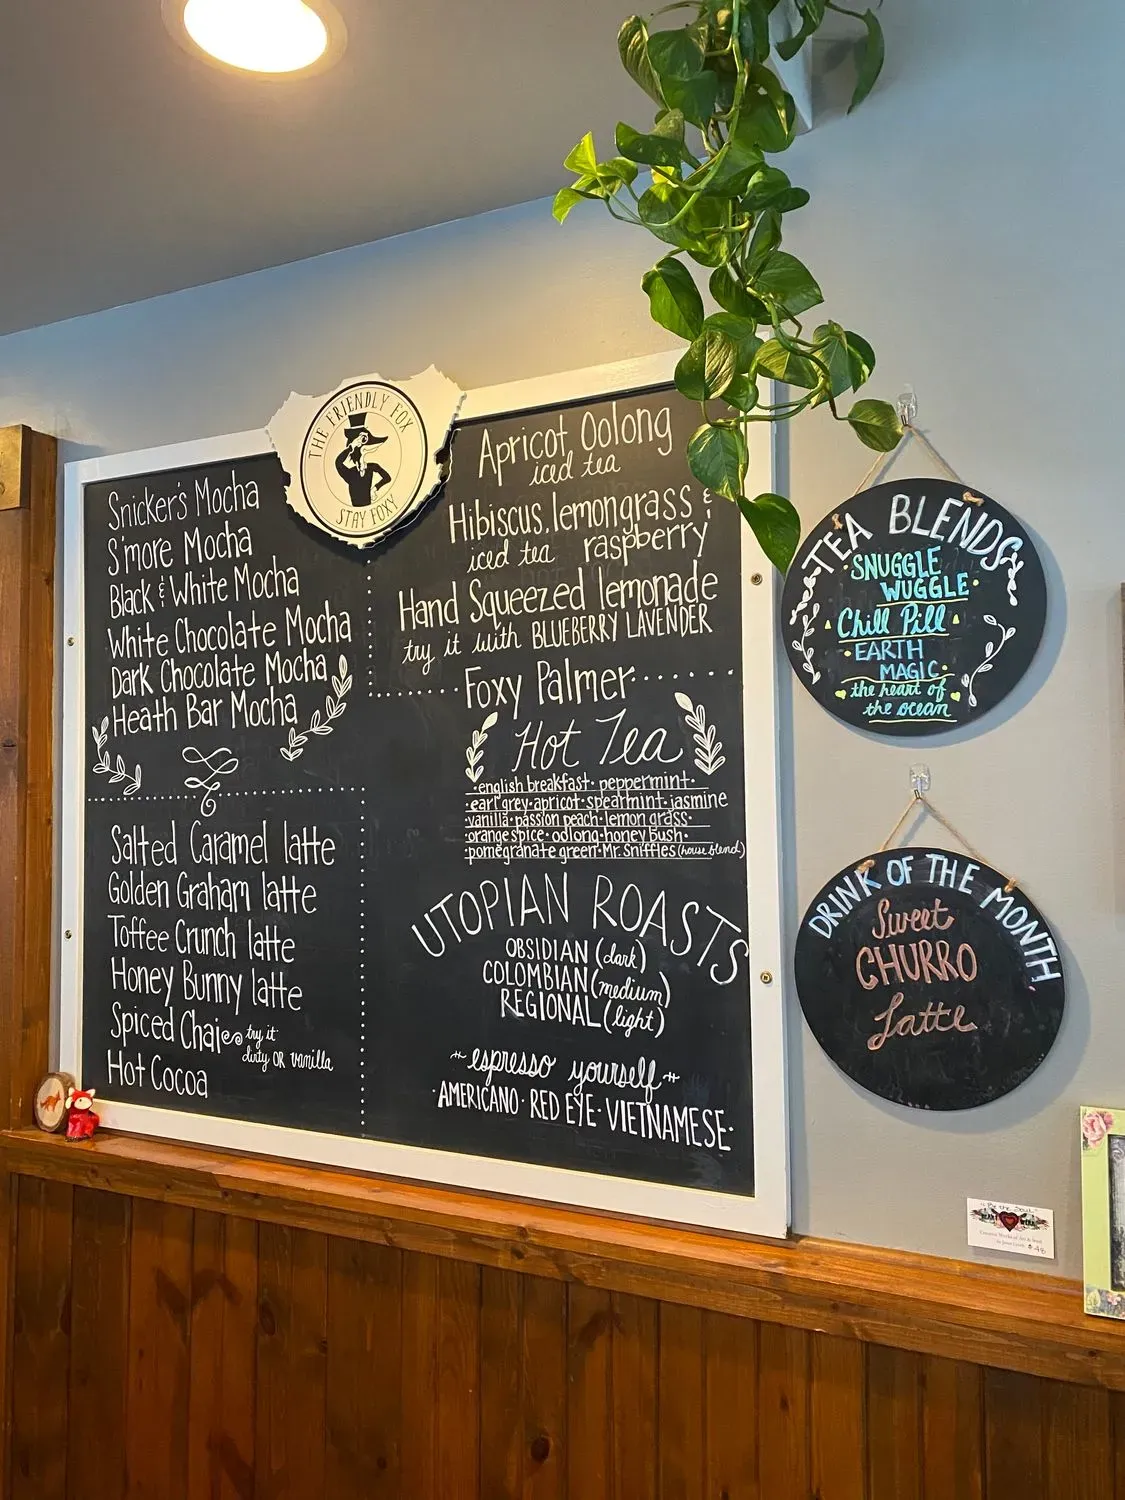 THE FRIENDLY FOX
STAY FOXY
Snicker's Mocha
S'more Mocha
Black & White Mocha
White Chocolate Mocha
Dark Chocolate Mocha
Heath Bar Mocha
Salted Caramel latte
Golden Graham latte
Toffee Crunch latte
Honey Bunny latte
Spiced Chai try it
dirty OR vanilla
Hot Cocoa
Apricot Oolong
iced tea
Hibiscus, lemongrass &
iced tea raspberry
Hand Squeezed lemonade
try it with BLUEBERRY LAVENDER
Foxy Palmer
Hot Tea
·english breakfast· peppermint·
earl grey·apricot·spearmint·jasmine
vanilla·passion peach·lemon grass·
orange spice·oolong·honey bush·
pomegranate green·Mr. Sniffles (house blend)
UTOPIAN ROASTS
OBSIDIAN (dark)
COLOMBIAN (medium)
REGIONAL (light)
espresso yourself
·AMERICANO·RED EYE·VIETNAMESE·
TEA BLENDS
SNUGGLE
WUGGLE·
Chill Pill
·EARTH
MAGIC·
the heart of
the ocean
DRINK OF THE MONTH
Sweet
CHURRO
Latte
HEART WERK
$48